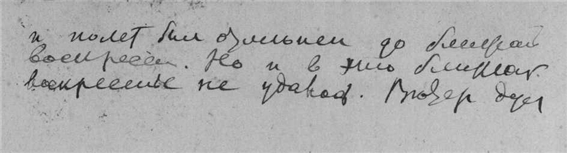 и полет был отложен до ближай
воскресен. Но и в это ближай.
воскресенье не удалось. Ветер дул